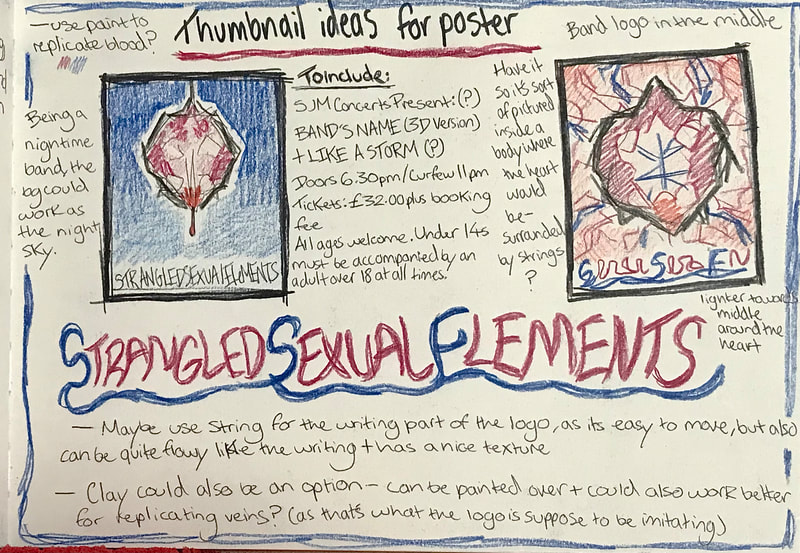 Thumbnail ideas for poster
— use paint to
replicate blood?
Being a
nightime
band, the
bg could
work as
the night
sky.
STRANGLEDSEXUALELEMENTS
To include:
SJM Concerts Present: (?)
BAND'S NAME (3D version)
+ LIKE A STORM (?)
Doors 6.30pm/Curfew 11pm
Tickets: £32.00 plus booking
fee
All ages welcome. Under 14s
must be accompanied by an
adult over 18 at all times.
Have it
so its sort
of pictured
inside a
body where
the heart
would
be-
surranded
by strings
?
Band logo in the middle
lighter towards
middle
around the
heart
STRANGLED SEXUAL ELEMENTS
— Maybe use string for the writing part of the logo, as its easy to move, but also
can be quite flowy like the writing + has a nice texture
— Clay could also be an option - can be painted over + could also work better
for replicating veins? (as that's what the logo is suppose to be imitating)